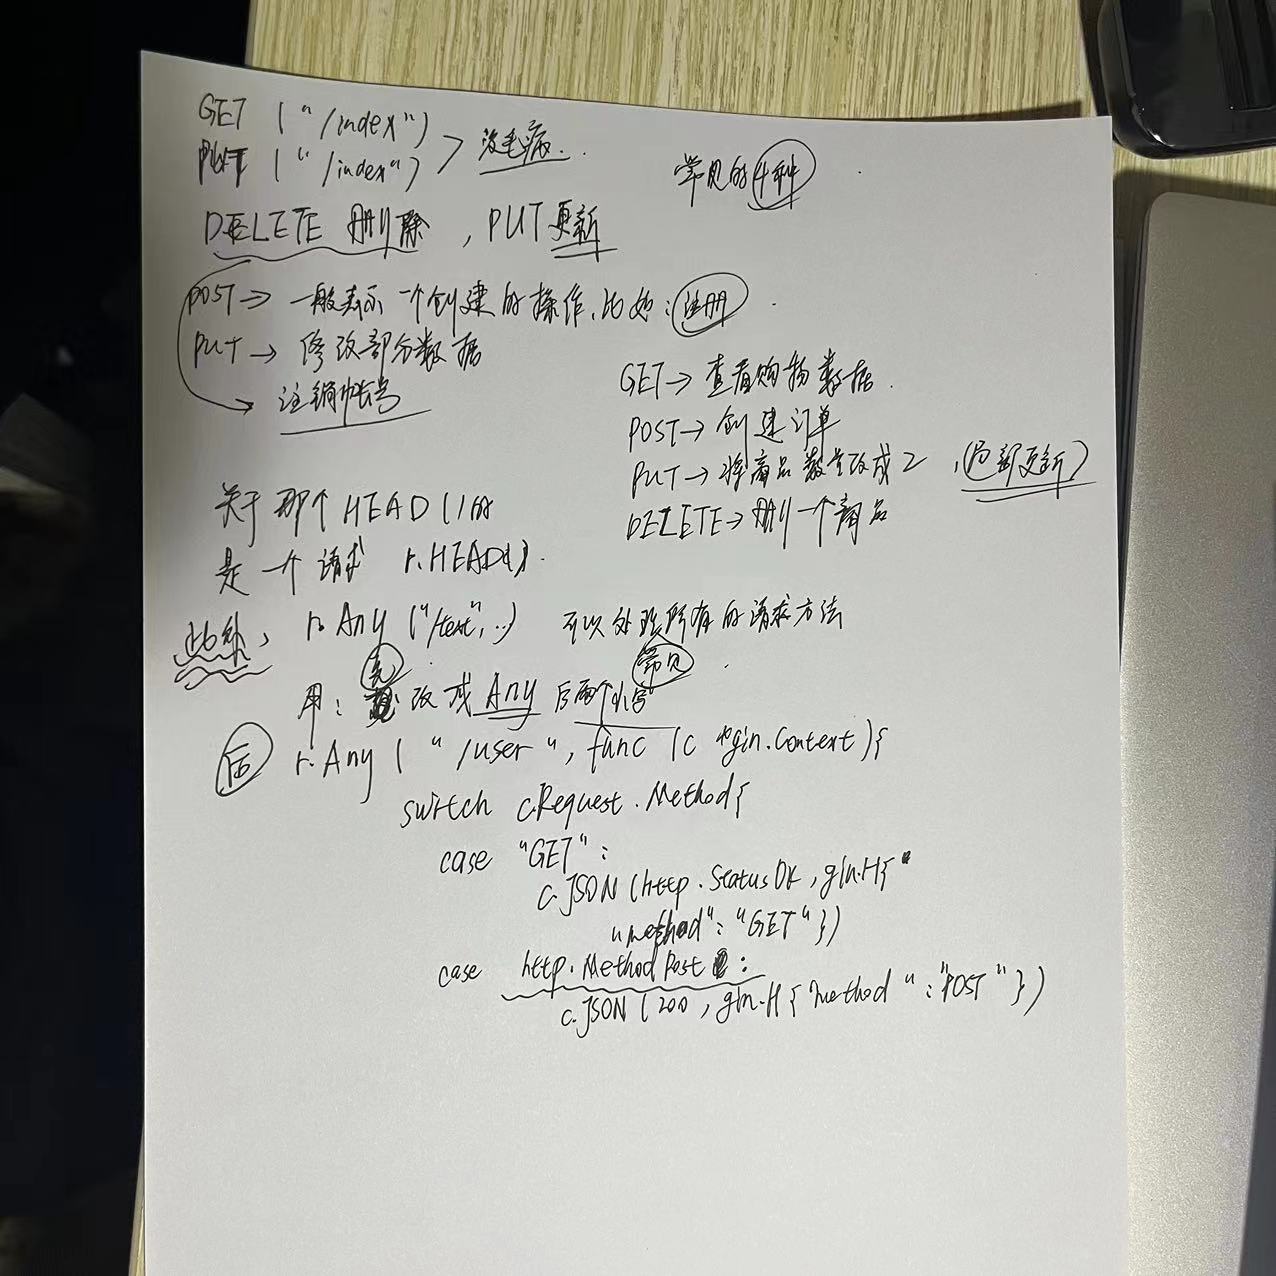 GET ("/index")
("/index") > 没毛病.
常见的4种
DELETE 删除, PUT更新
POST → 一般表示一个创建的操作, 比如: 注册
PUT → 修改部分数据
注销帐号
GET → 查看购物数据.
POST → 创建订单
PUT → 将商品数量改成2, (局部更新)
DELETE → 删一个商品
关于那个HEAD()的
是一个请求 r.HEAD().
此外, r.Any ("/text",..) 可以处理所有的请求方法
先 常见
用: 改成Any 后面个小写
后 r.Any ( "/user", func (c *gin.Context){
switch c.Request.Method{
case "GET":
c.JSON (http.StatusOK, gin.H{
"method": "GET"})
case http.MethodPost :
c.JSON (200, gin.H{"method": "POST"})